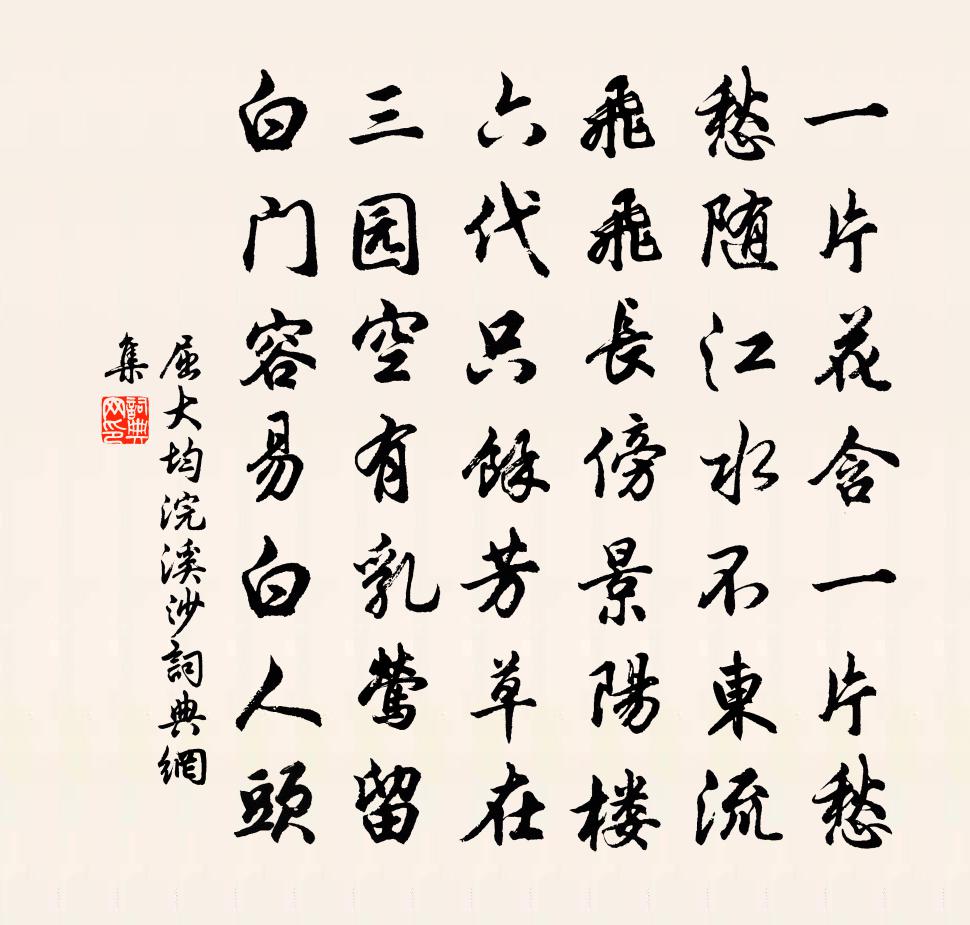 一片花含一片愁
愁随江水不東流
飛飛長傍景陽楼
六代只餘芳草在
三园空有乳鶯留
白门容易白人頭
屈大均浣溪沙詞典網
集
詞典
网印